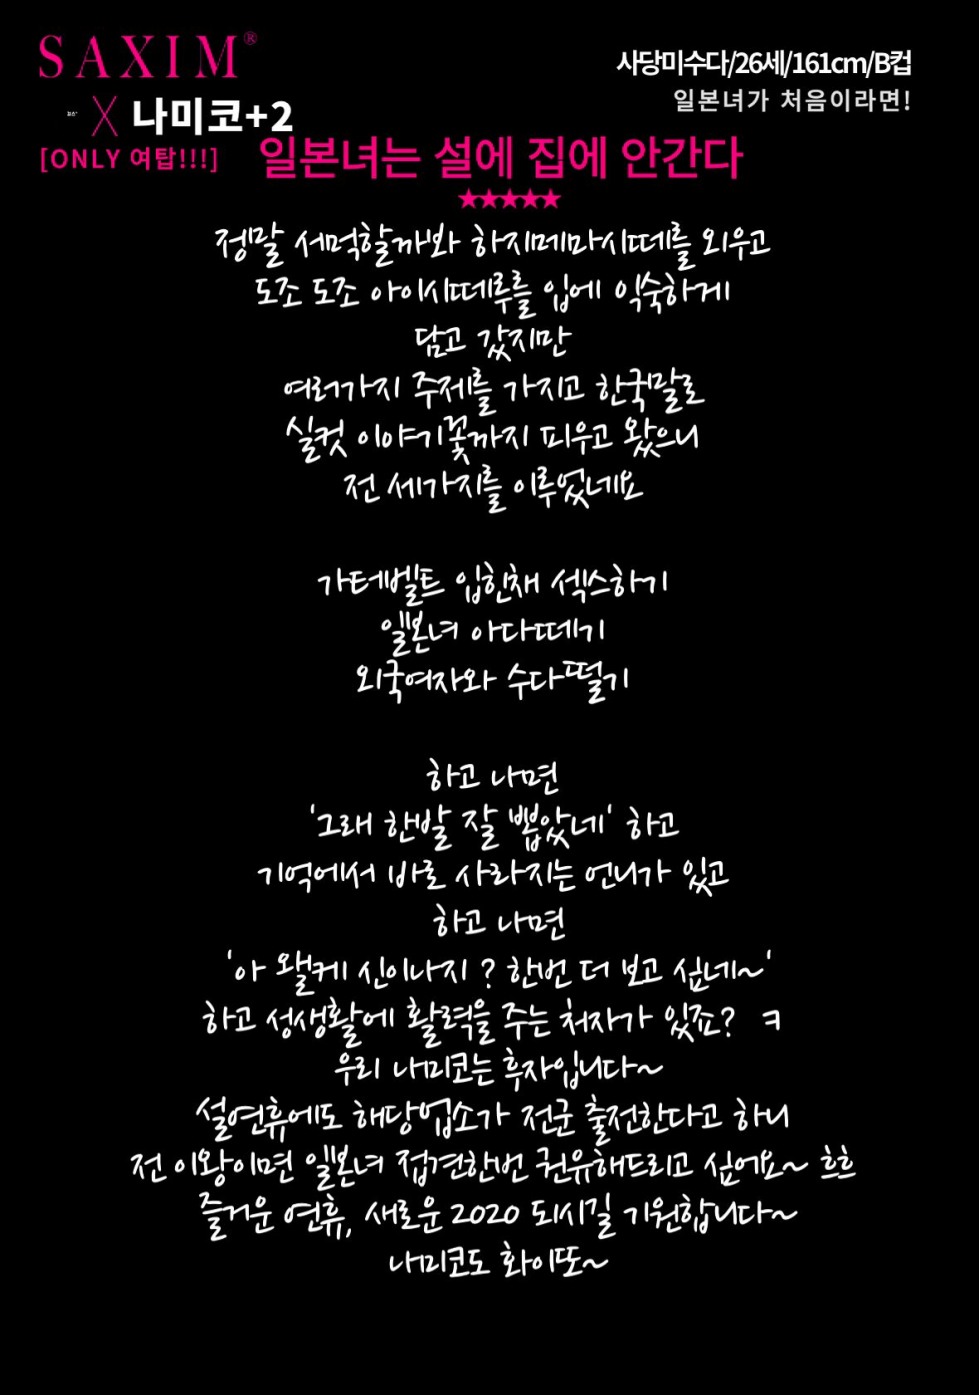 SAXIM®
X 나미코+2
[ONLY 여탑!!!]
사당미수다/26세/161cm/B컵
일본녀가 처음이라면!
일본녀는 설에 집에 안간다
★★★★★
정말 서먹할까봐 하지메마시떼를 외우고
도조 도조 아이시떼루를 입에 익숙하게
담고 갔지만
여러가지 주제를 가지고 한국말로
실컷 이야기꽃까지 피우고 왔으니
전 세가지를 이루었네요
가터벨트 입힌채 섹스하기
일본녀 아다떼기
외국여자와 수다떨기
하고 나면
'그래 한발 잘 뽑았네' 하고
기억에서 바로 사라지는 언니가 있고
하고 나면
'아 왤케 신이나지? 한번 더 보고 싶네~'
하고 성생활에 활력을 주는 처자가 있죠? ㅋ
우리 나미코는 후자입니다~
설연휴에도 해당업소가 전군 출전한다고 하니
전 이왕이면 일본녀 접견한번 권유해드리고 싶어요~ 흐흐
즐거운 연휴, 새로운 2020 되시길 기원합니다~
나미코도 화이또~